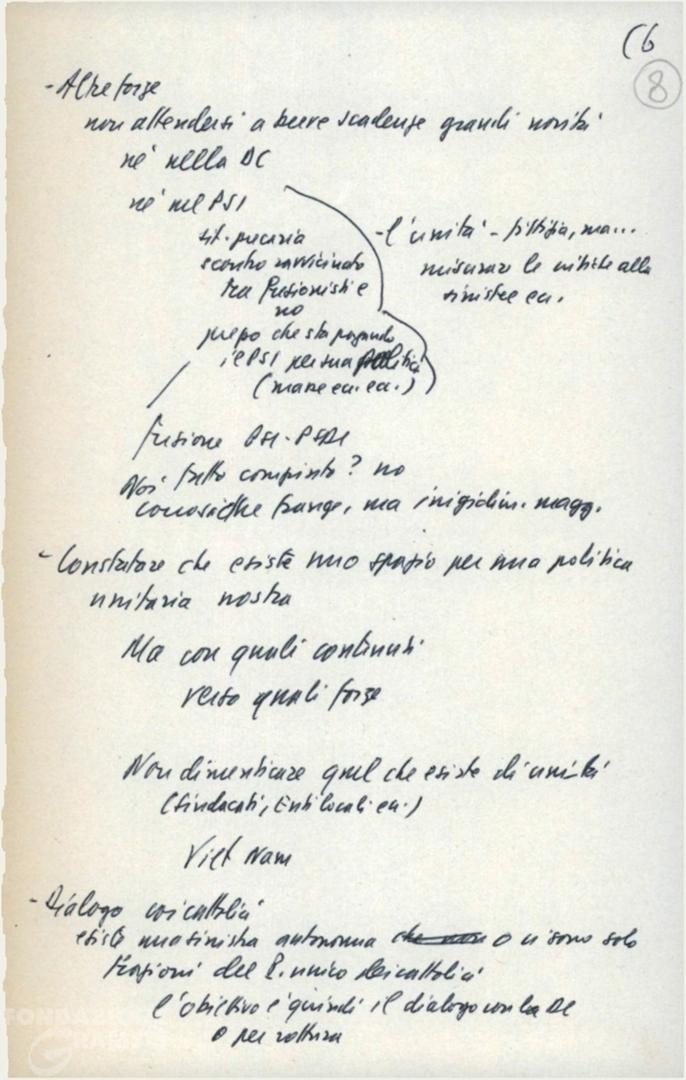 (6
8
- Altre forze
non attendersi a breve scadenza grandi novità
né nella DC
né nel PSI
sit. precaria
scontro ravvicinato
tra fusionisti e
no
prezzo che sta pagando
il PSI per sua politica
(mance ecc. ecc.)
- l'unità - ma...
misurare le critiche alla
sinistra ecc.
fusione PSI-PSDI
Noi fatto compiuto? no
conosciam frange, ma magg.
- Constatare che esiste uno spazio per una politica
unitaria nostra
Ma con quali contenuti
verso quali forze
Non dimenticare quel che esiste di unità
(Sindacati, Enti locali ecc.)
Viet Nam
- Dialogo coi cattolici
esiste una sinistra autonoma o ci sono solo
frazioni del P. unico dei cattolici
l'obiettivo è quindi il dialogo con la DC
o per rottura
FONDAZIONE
GRAMSCI